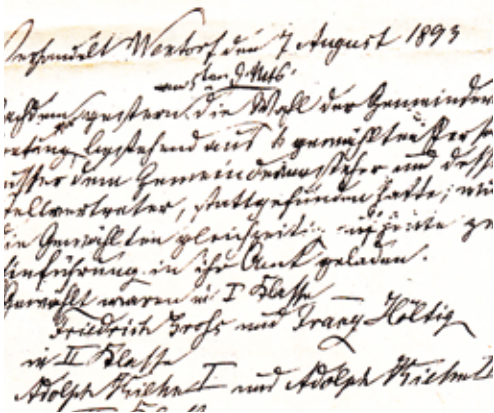 Verhandelt Wentorf den 7 August 1893
am 5ten d. Mts.
Nachdem gestern die Wahl der Gemeindever
tretung, bestehend aus 6 gewählten Perso
außer dem Gemeindevorsteher und dess
Stellvertreter, stattgefunden hatte, wur
die Gewählten gleichzeitig heute zu
Einführung in ihr Amt geladen.
Gewählt waren in I Klasse
Friedrich Brohs und Franz Höltig
in II Klasse
Adolph Kiehn I und Adolph Kiehn II